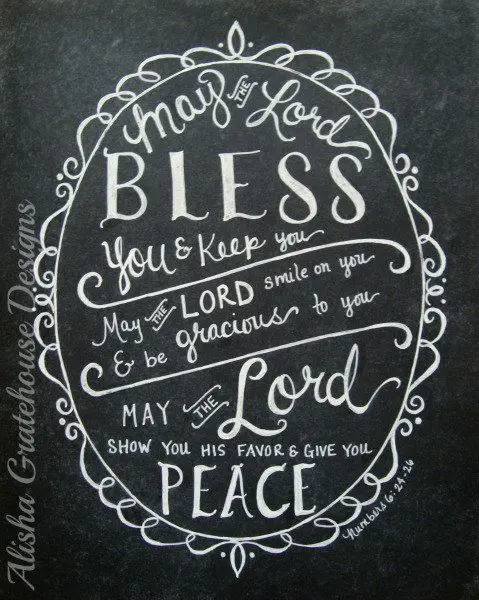 May THE Lord
BLESS
You & Keep you
May THE LORD smile on you
& be gracious to you
MAY THE Lord
SHOW YOU HIS FAVOR & GIVE YOU
PEACE
Numbers 6:24-26
Alisha Gratehouse Designs